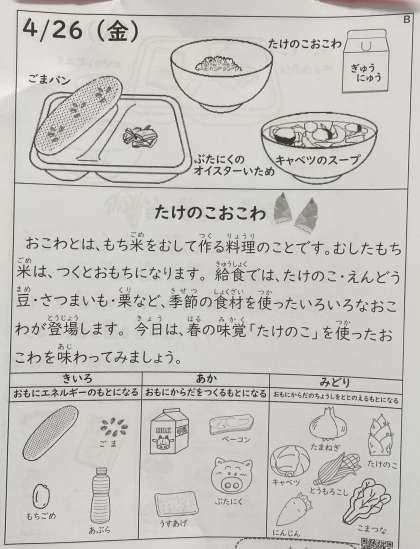 B
4/26（金）
たけのこおこわ
ぎゅう
にゅう
ごまパン
ぶたにくの
オイスターいため
キャベツのスープ
たけのこおこわ
おこわとは、もち米をむして作る料理のことです。むしたもち
米は、つくとおもちになります。給食では、たけのこ・えんどう
豆・さつまいも・栗など、季節の食材を使ったいろいろなおこ
わが登場します。今日は、春の味覚「たけのこ」を使ったお
こわを味わってみましょう。
きいろ
あか
みどり
おもにエネルギーのもとになる
おもにからだをつくるもとになる
おもにからだのちょうしをととのえるもとになる
ごま
ベーコン
たまねぎ
たけのこ
キャベツ
とうもろこし
もちごめ
あぶら
うすあげ
ぶたにく
にんじん
こまつな